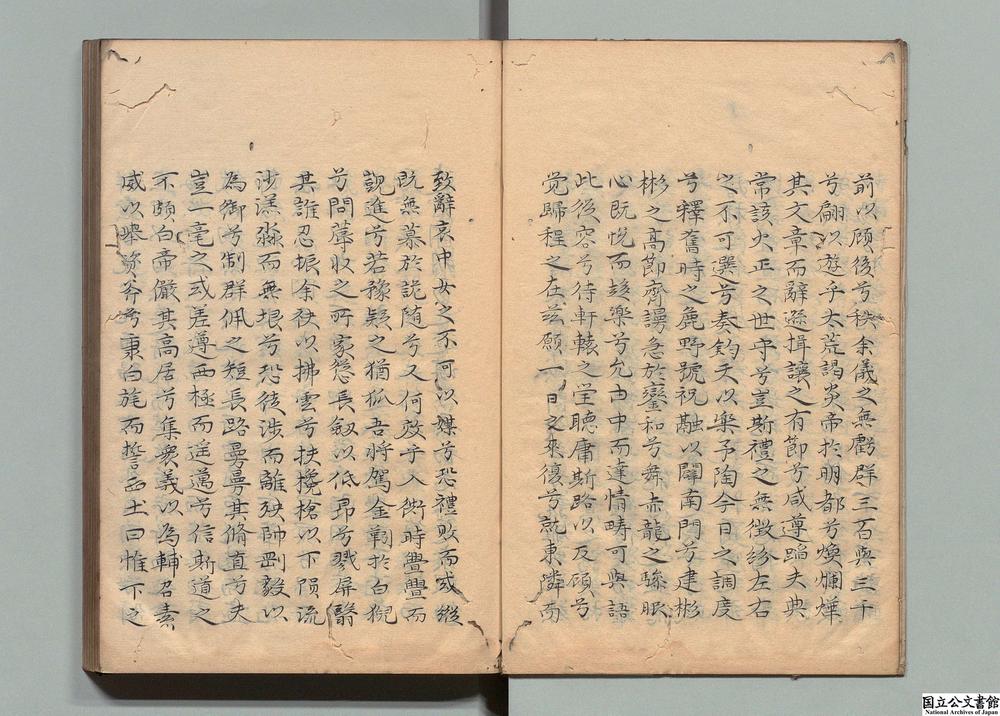 前以顧後兮秩余儀之無虧群三百與三千
兮翩以遊乎太荒謁炎帝於明都兮煥爛燁
其文章而辭遜揖讓之有節兮咸遵蹈夫典
常該火正之世守兮豈斯禮之無徴紛左右
之不可選兮奏鈞天以樂予陶今日之調度
兮釋舊時之麁野號祝融以闢南門兮建彬
彬之高節齊謾急於鑾和兮舞赤龍之驂
心既悦而
樂兮允由中而達情疇可與語
此後容兮待軒轅之
聽庸斯路以反顧兮
覚歸程之在茲願一日之來復兮就東隣而
致辭哀中女之不可以媒兮恐禮敗而或縱
既無慕於詭随兮又何
乎入衛時亹亹而
覬進兮若豫疑之猶狐吾將駕金
於白猊
兮問蓐収之所家
長劔以低昂兮戮屏翳
其誰忍振余袂以拂雲兮扶攙槍以下隕流
沙漾淼而無垠兮恐徒渉而離殃帥剛毅以
為御兮制群佩之短長路曼曼其脩直兮夫
豈一毫之或差遵西極而遥邁兮信斯道之
不頗白帝儼其高居兮集衆義以為輔召素
威以
資斧兮秉白旄而誓西土曰惟下之
国立公文書館
National Archives of Japan